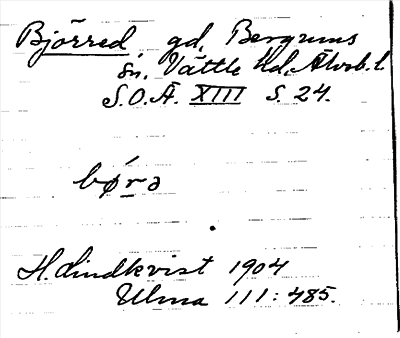 Björred gd, Bergums
sn, Vättle hd, Älvsb. l.
S.O.Ä. XIII S. 24.
bǿrə
H. Lindkvist 1904
Ulma 111:485.